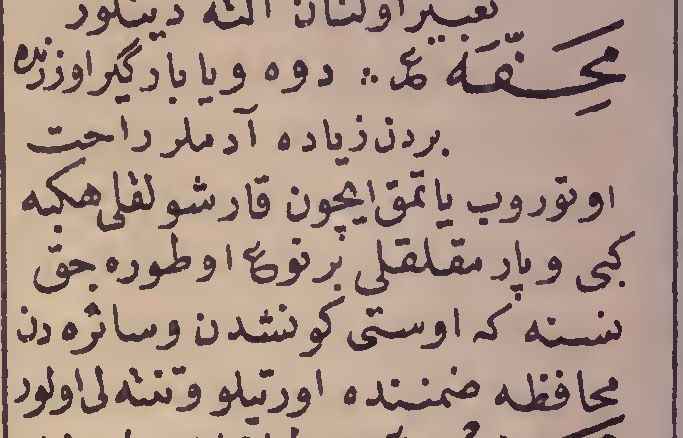 تعبير اولنان آلته دينلور
مِحَفَّه ع : دوه ويا باركير اوززنده
بردن زياده آدملر راحت
اوتوروب ياتمق ايچون قارشولقلى هكبه
كبى و پارمقلقلى بر نوع اوطوره جق
نسنه كه اوستى كونشدن وسائره دن
محافظه ضمننده اورتيلو وتنته لى اولور